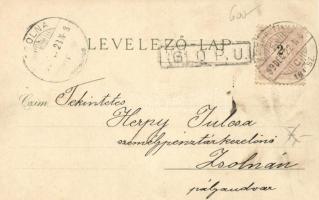 600
ZSOLNA
LEVELEZŐ-LAP.
IGLÓ P. U.
2
Czim Tekintetes
Herpy Gulcsa
személypénztárkezelőnő
Zsolnán
pályaudvar